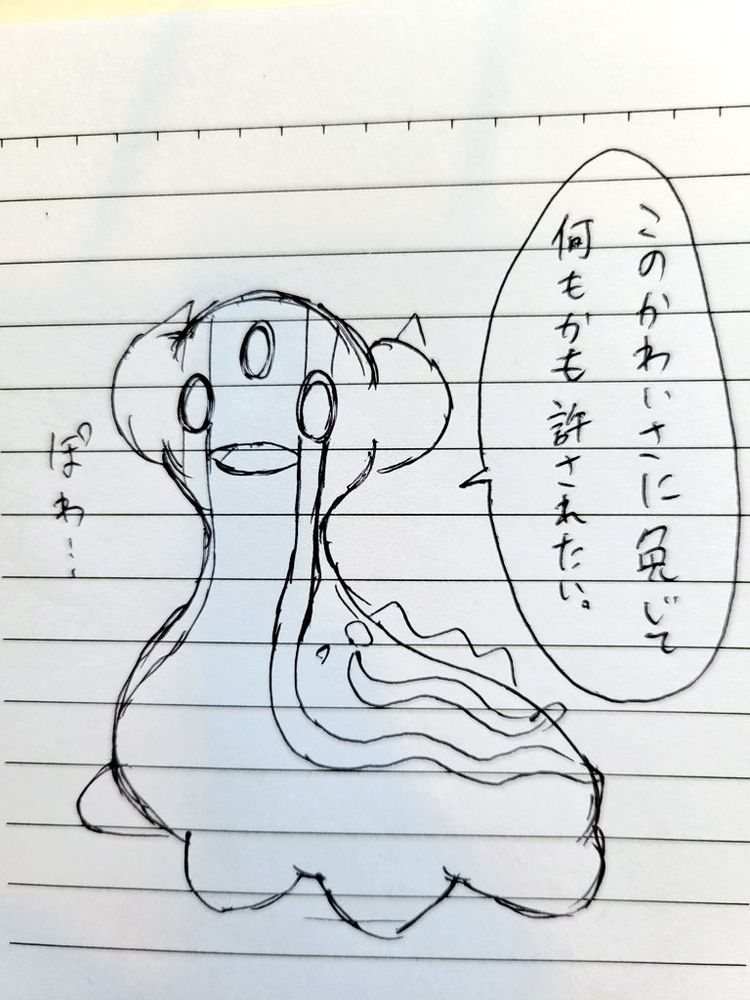 このかわいさに免じて
何もかも許されたい。
ぽわ…